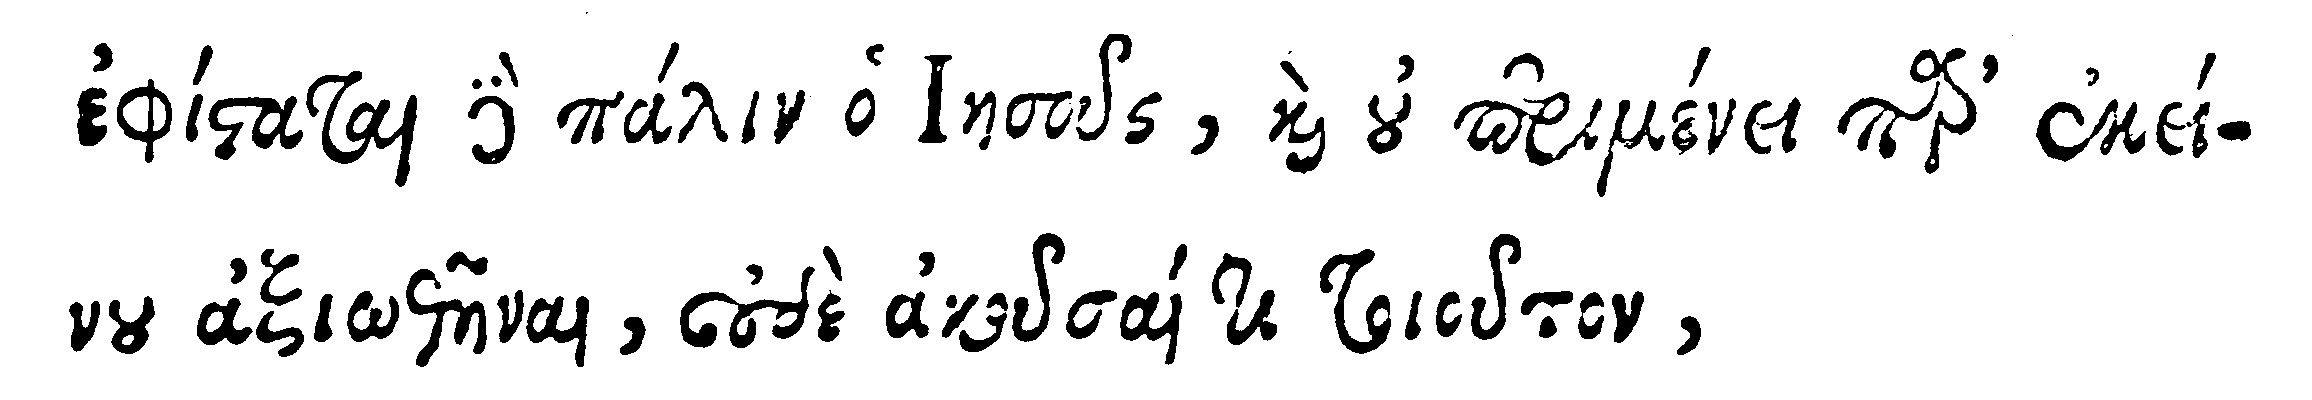 ἐφίσταται δὲ πάλιν ὁ Ιησοῦς, καὶ οὐ περιμένει παρ’ ἐκεί-
νου ἀξιωθῆναι, οὐδὲ ἀκοῦσαί τι τοιοῦτον,